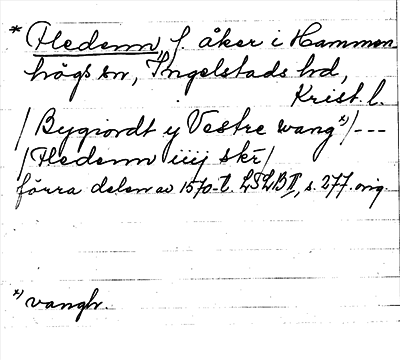 * Hedenn, f. åker i Hammen-
högs sn, Ingelstads hd,
Krist. l.
/ Bygiordt y Vestre wang *)/ ---
/ Hedenn iiij skr/
förra delen av 1570-t. LSLB II, s. 277. orig.
*) vangh.